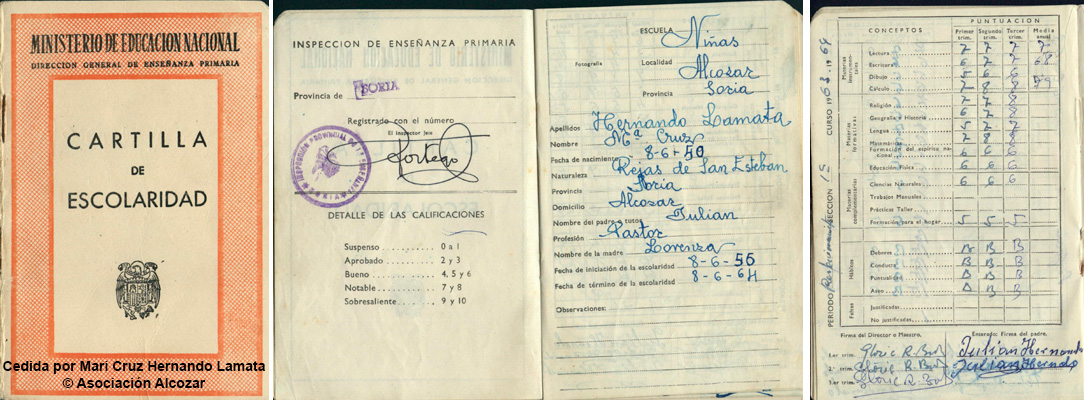 MINISTERIO DE EDUCACION NACIONAL
DIRECCION GENERAL DE ENSEÑANZA PRIMARIA
CARTILLA
DE
ESCOLARIDAD
Cedida por Mari Cruz Hernando Lamata
© Asociación Alcozar
INSPECCION DE ENSEÑANZA PRIMARIA
Provincia de SORIA
Registrado con el número
El Inspector Jefe
DETALLE DE LAS CALIFICACIONES
Suspenso .......... 0 a 1
Aprobado .......... 2 y 3
Bueno .......... 4, 5 y 6
Notable .......... 7 y 8
Sobresaliente .......... 9 y 10
Fotografía
ESCUELA Niñas
Localidad Alcosar
Provincia Soria
Apellidos Hernando Lamata
Nombre Mª Cruz
Fecha de nacimiento 8-6-50
Naturaleza Rejas de San Esteban
Provincia Soria
Domicilio Alcosar
Nombre del padre o tutor Julian
Profesión Pastor
Nombre de la madre Lorenza
Fecha de iniciación de la escolaridad 8-6-56
Fecha de término de la escolaridad 8-6-64
Observaciones:
PERIODO
SECCION
CURSO 1963-1964
CONCEPTOS
PUNTUACION
Primer trim. Segundo trim. Tercer trim. Media anual
Materias instrumentales
Lectura 7 7 7 7
Escritura 6 7 7 68
Dibujo 5 6 6
Cálculo 7 8 8
Materias formativas
Religión 7 7 8
Geografía e Historia 6 7 8
Lengua 5 7 7
Matemáticas 7 8 8
Formación del espíritu nacional 6 6 6
Educación Física 6 6 6
Materias complementarias
Ciencias Naturales 6 6 6
Trabajos Manuales
Prácticas Taller
Formación para el hogar 5 5 5
Hábitos
Deberes B B B
Conducta B B B
Puntualidad B B B
Aseo B B B
Faltas
Justificadas
No justificadas
Firma del Director o Maestro.
Enterado: Firma del padre.
1.er trim.
2.º trim.
3.er trim.
Julian Hernando
Julian Hernando